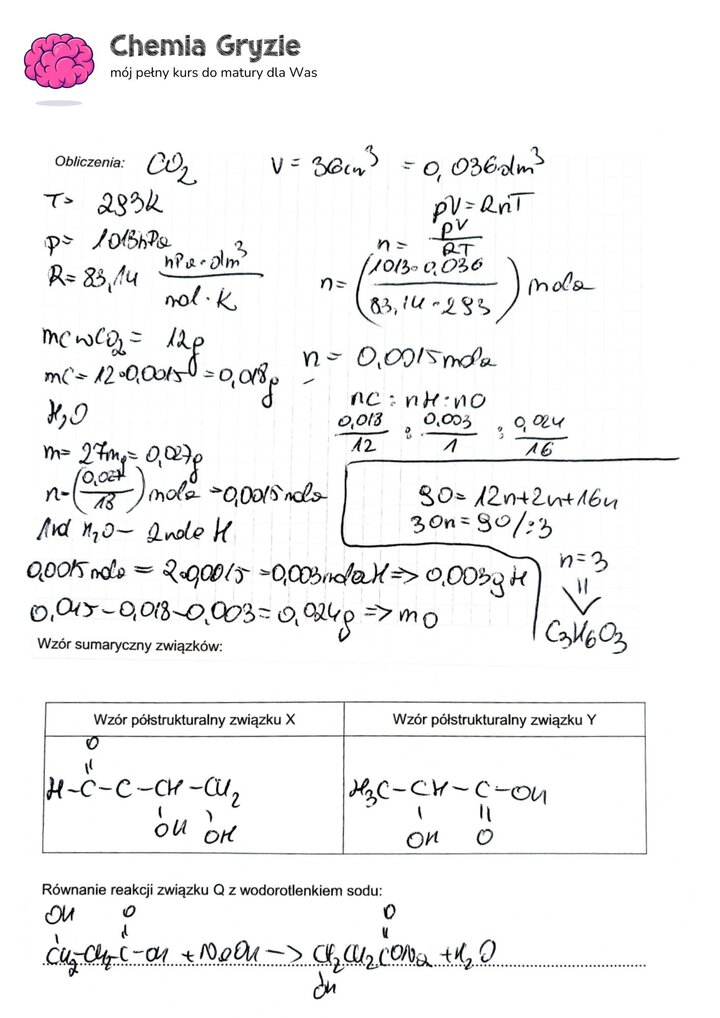 Chemia Gryzie
mój pełny kurs do matury dla Was
Obliczenia: CO₂ V = 36cm³ = 0,036dm³
T= 293K
pV=RnT
p= 1013hPa
n= pV/RT
R= 83,14 hPa·dm³/mol·K
n= (1013·0,036/83,14·293) mola
mC w CO₂ = 12g
n = 0,0015 mola
mC = 12·0,0015 = 0,018g
nC : nH : nO
H₂O
0,018/12 : 0,003/1 : 0,024/16
m= 27mg = 0,027g
n=(0,027/18) mola =0,0015 mola
90= 12n+2n+16n
1mol H₂O – 2mole H
30n=90 /:3
n=3
0,0015 mola = 2·0,0015 =0,003mola H => 0,003g H
0,045-0,018-0,003= 0,024g => mO
C₃H₆O₃
Wzór sumaryczny związków:
Wzór półstrukturalny związku X Wzór półstrukturalny związku Y
O
||
H-C-C-CH-CH₂ H₃C-CH-C-OH
OH OH OH O
Równanie reakcji związku Q z wodorotlenkiem sodu:
OH O O
CH₂-CH₂-C-OH + NaOH -> CH₂CH₂CONa + H₂O
OH